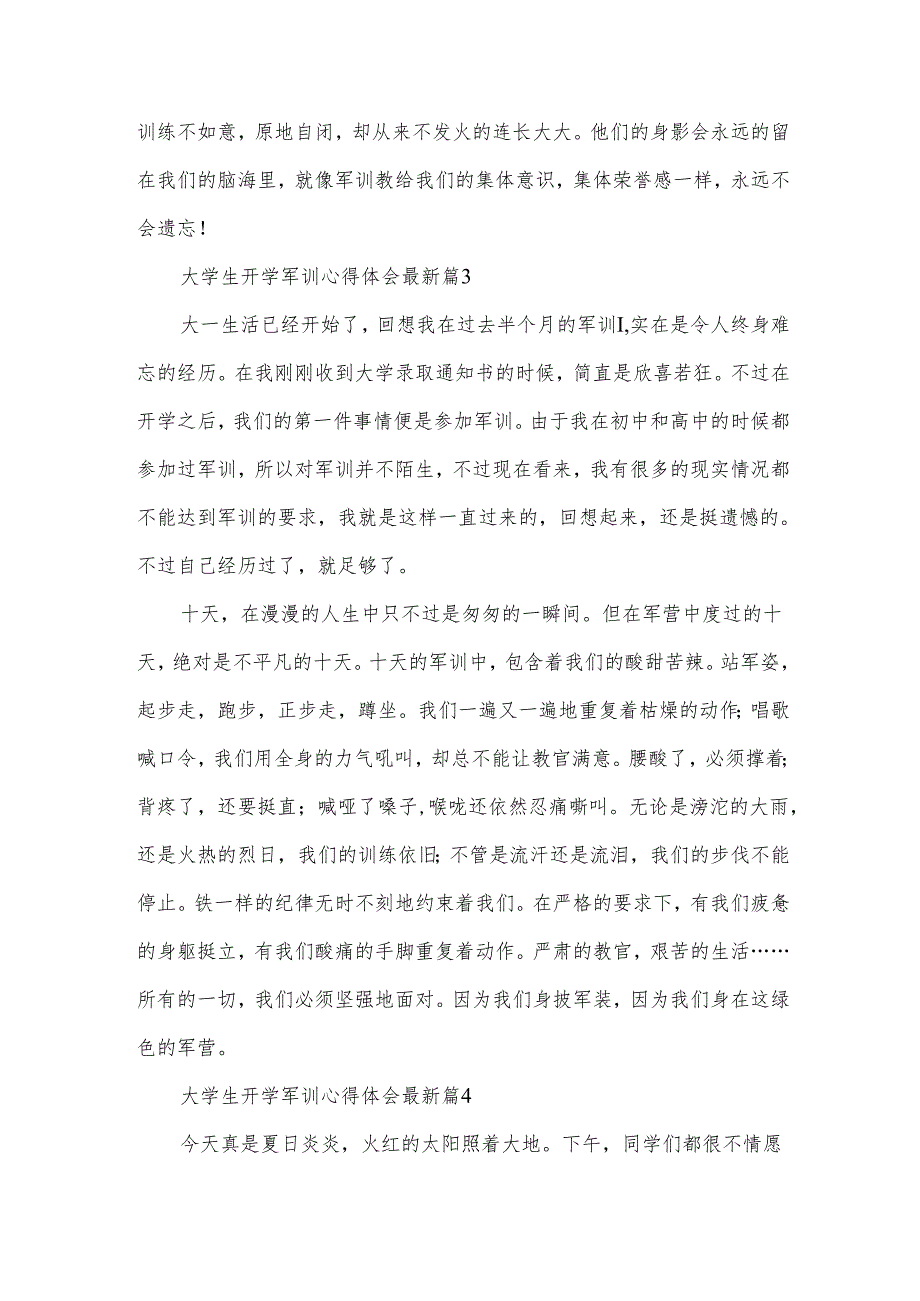 训练不如意，原地自闭，却从来不发火的连长大大。他们的身影会永远的留
在我们的脑海里，就像军训教给我们的集体意识，集体荣誉感一样，永远不
会遗忘！
大学生开学军训心得体会最新篇3
大一生活已经开始了，回想我在过去半个月的军训I,实在是令人终身难
忘的经历。在我刚刚收到大学录取通知书的时候，简直是欣喜若狂。不过在
开学之后，我们的第一件事情便是参加军训。由于我在初中和高中的时候都
参加过军训，所以对军训并不陌生，不过现在看来，我有很多的现实情况都
不能达到军训的要求，我就是这样一直过来的，回想起来，还是挺遗憾的。
不过自己经历过了，就足够了。
十天，在漫漫的人生中只不过是匆匆的一瞬间。但在军营中度过的十
天，绝对是不平凡的十天。十天的军训中，包含着我们的酸甜苦辣。站军姿，
起步走，跑步，正步走，蹲坐。我们一遍又一遍地重复着枯燥的动作；唱歌
喊口令，我们用全身的力气吼叫，却总不能让教官满意。腰酸了，必须撑着；
背疼了，还要挺直；喊哑了嗓子，喉咙还依然忍痛嘶叫。无论是滂沱的大雨，
还是火热的烈日，我们的训练依旧；不管是流汗还是流泪，我们的步伐不能
停止。铁一样的纪律无时不刻地约束着我们。在严格的要求下，有我们疲惫
的身躯挺立，有我们酸痛的手脚重复着动作。严肃的教官，艰苦的生活……
所有的一切，我们必须坚强地面对。因为我们身披军装，因为我们身在这绿
色的军营。
大学生开学军训心得体会最新篇4
今天真是夏日炎炎，火红的太阳照着大地。下午，同学们都很不情愿